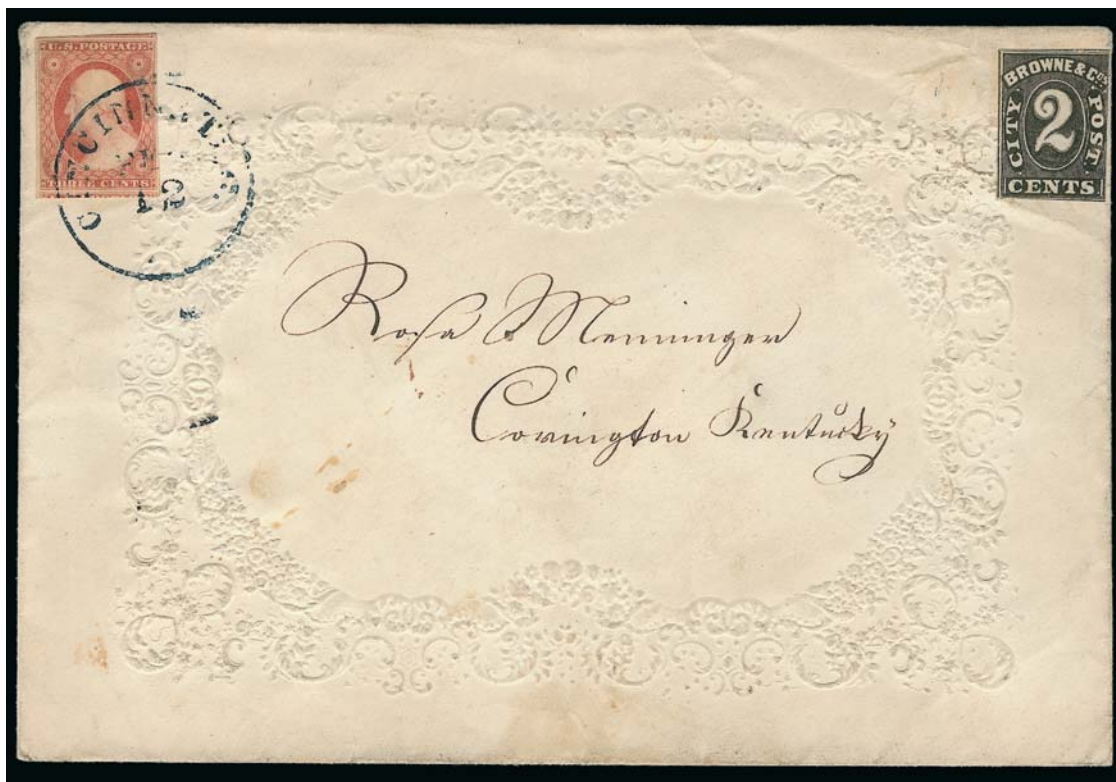 U.S. POSTAGE
THREE CENTS
CINCINNATI O.
12
BROWNE & Co's
CITY POST.
2
CENTS
Rosa Menninger
Covington Kentucky